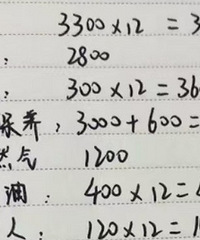 3300×12 = 3
: 2800
: 300×12 = 36
保养, 3000+600 =
然气 1200
油: 400×12 =
人: 120×12 = 1